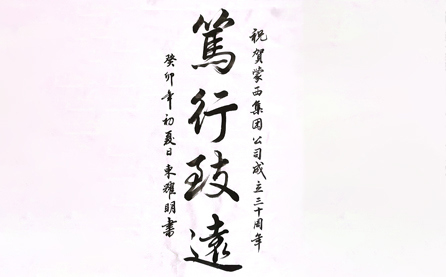 祝賀蒙西集团公司成立三十周年
篤行致遠
癸卯年初夏日東耀明書